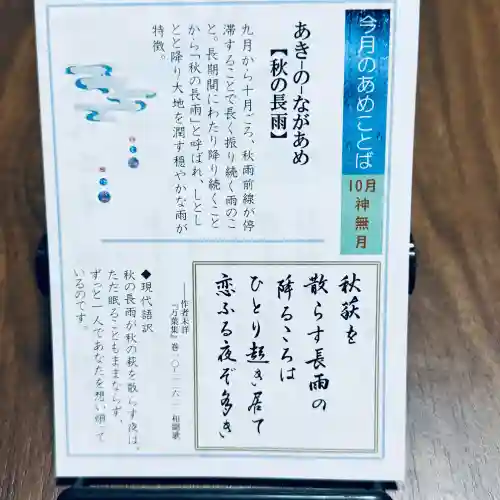 今月のあめことば
10月
神無月
あき-の-ながあめ
【秋の長雨】
九月から十月ごろ、秋雨前線が停
滞することで長く振り続く雨のこ
と。長期間にわたり降り続くこと
から「秋の長雨」と呼ばれ、しとし
とと降り大地を潤す穏やかな雨が
特徴。
秋荻を
散らす長雨の
降るころは
ひとり起き居て
恋ふる夜ぞ多き
――作者未詳
『万葉集』巻一〇-二二六二 相聞歌
◆現代語訳
秋の長雨が秋の萩を散らす夜は、
ただ眠ることもままならず、
ずっと一人であなたを想い煩って
いるのです。